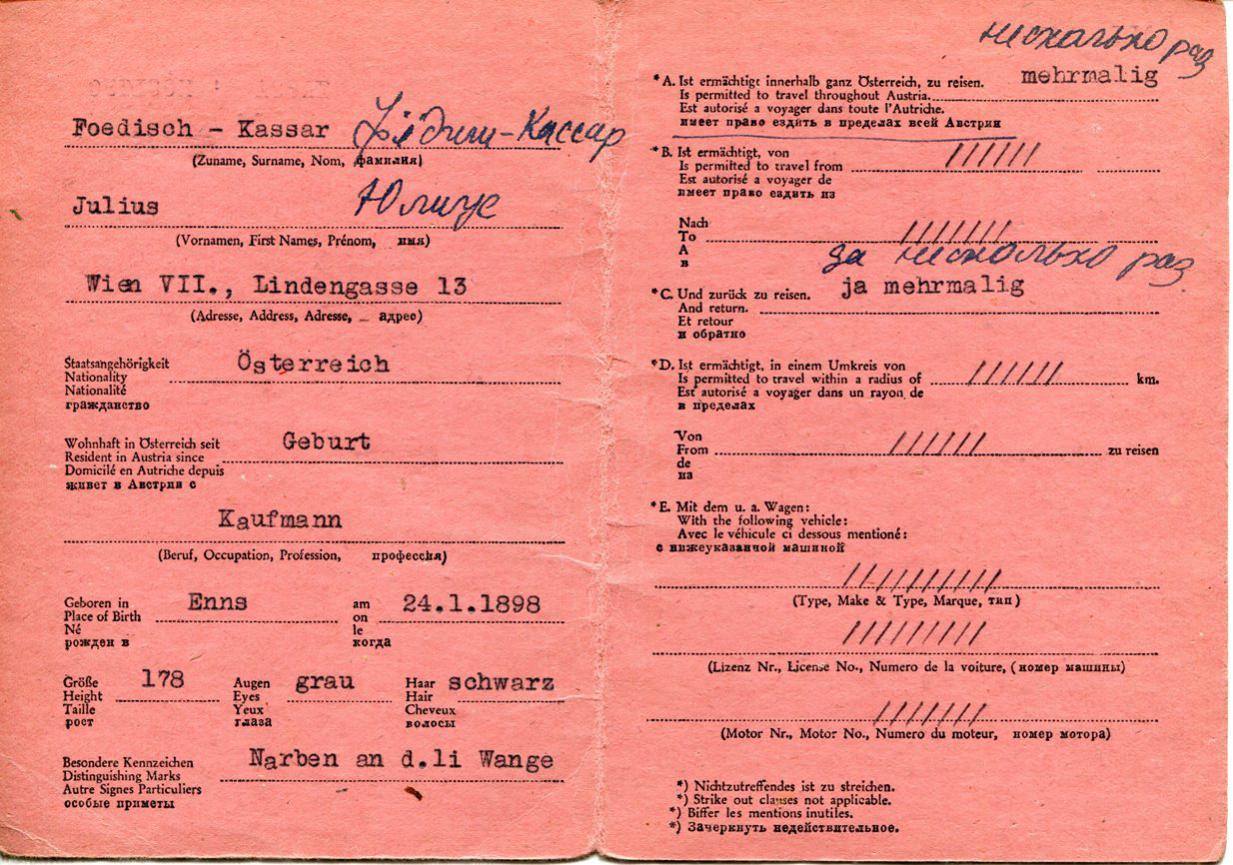 Foedisch - Kassar Фёдиш-Кассар
(Zuname, Surname, Nom, фамилия)
Julius Юлиус
(Vornamen, First Names, Prénom, имя)
Wien VII., Lindengasse 13
(Adresse, Address, Adresse, адрес)
Staatsangehörigkeit Österreich
Nationality
Nationalité
гражданство
Wohnhaft in Österreich seit Geburt
Resident in Austria since
Domicilé en Autriche depuis
живет в Австрии с
Kaufmann
(Beruf, Occupation, Profession, профессия)
Geboren in Enns am 24.1.1898
Place of Birth on
Né le
рожден в когда
Größe 178 Augen grau Haar schwarz
Height Eyes Hair
Taille Yeux Cheveux
рост глаза волосы
Besondere Kennzeichen Narben an d.li Wange
Distinguishing Marks
Autre Signes Particuliers
особые приметы
несколько раз
*A. Ist ermächtigt innerhalb ganz Österreich, zu reisen. mehrmalig
Is permitted to travel throughout Austria.
Est autorisé a voyager dans toute l'Autriche.
имеет право ездить в пределах всей Австрии
*B. Ist ermächtigt, von ///////
Is permitted to travel from
Est autorisé a voyager de
имеет право ездить из
Nach
To ////////
A
в
за несколько раз
*C. Und zurück zu reisen. ja mehrmalig
And return.
Et retour
и обратно
*D. Ist ermächtigt, in einem Umkreis von ///////
Is permitted to travel within a radius of km.
Est autorisé a voyager dans un rayon de
в пределах
Von ///////
From zu reisen
de
из
*E. Mit dem u. a. Wagen:
With the following vehicle:
Avec le véhicule ci dessous mentioné:
с нижеуказанной машиной
///////////
(Type, Make & Type, Marque, тип)
//////////
(Lizenz Nr., License No., Numero de la voiture, (номер машины)
////////
(Motor Nr., Motor No., Numero du moteur, номер мотора)
*) Nichtzutreffendes ist zu streichen.
*) Strike out clauses not applicable.
*) Biffer les mentions inutiles.
*) Зачеркнуть недействительное.